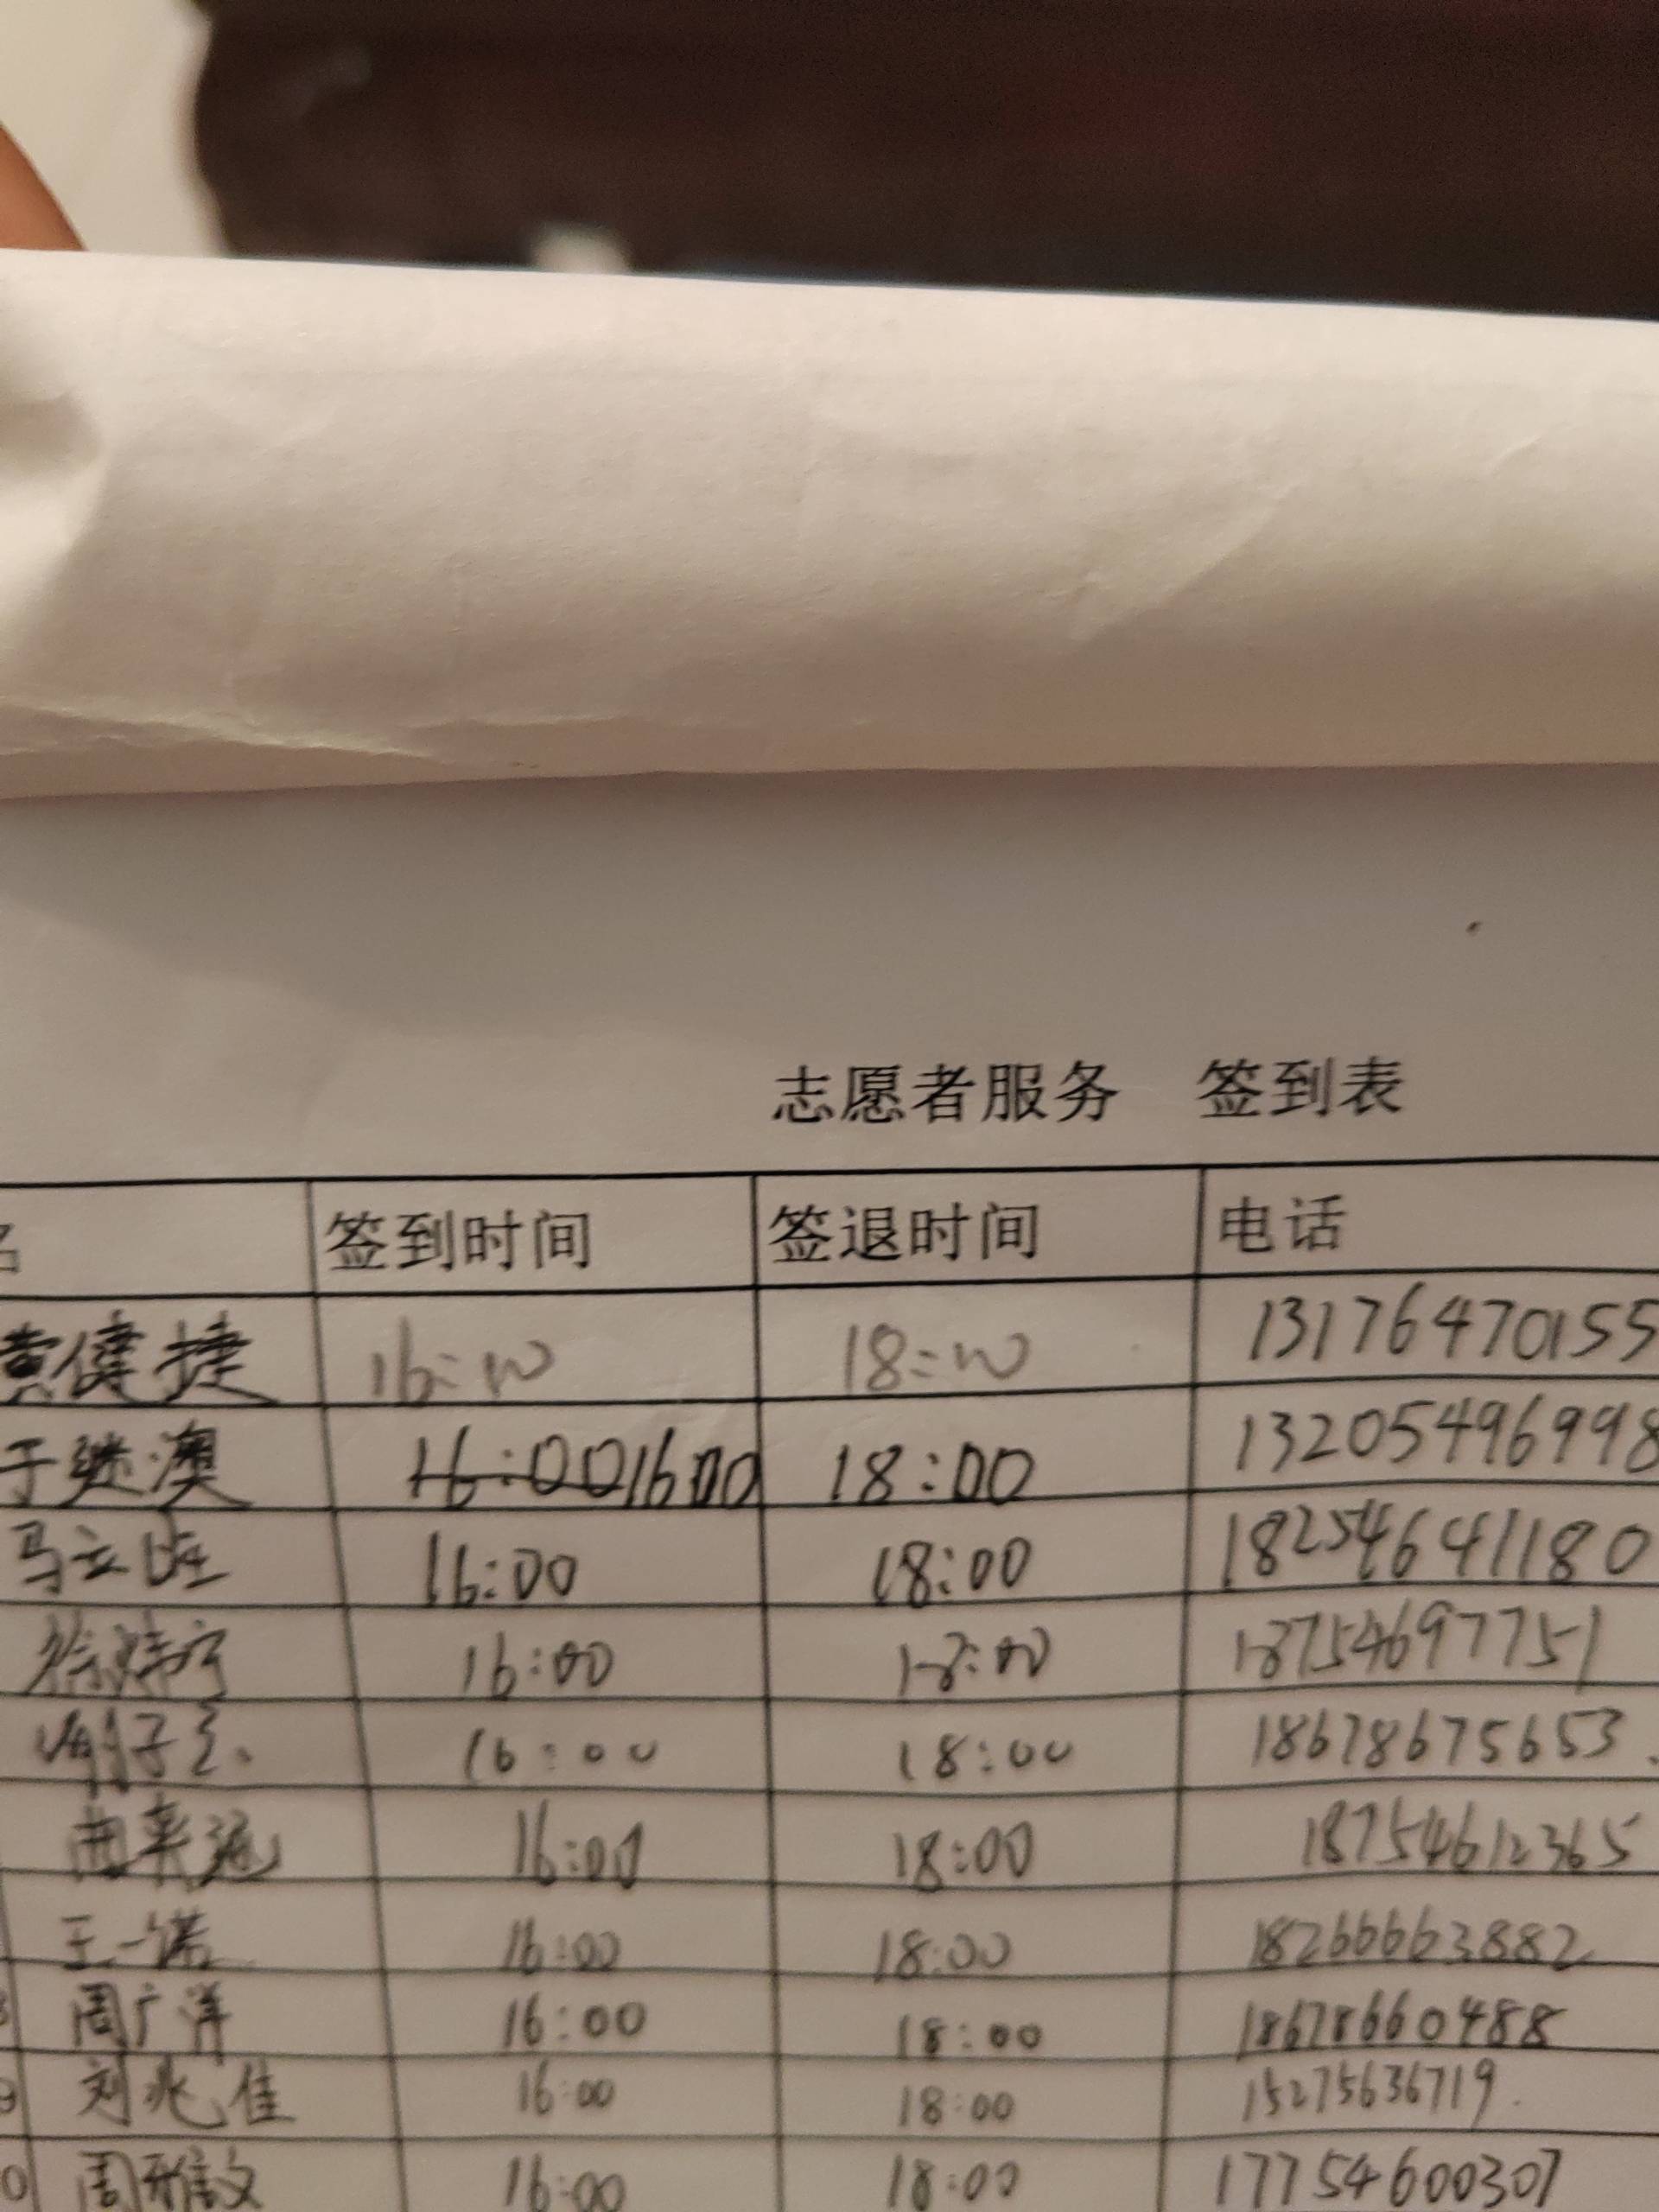 志愿者服务 签到表
名 签到时间 签退时间 电话
黄健捷 16:00 18:00 13176470155
于继澳 16:00 1600 18:00 13205496998
马云 16:00 18:00 18254641180
徐 16:00 18:00 18754697751
子 16:00 18:00 18678675653
曲来远 16:00 18:00 18754612365
王一诺 16:00 18:00 18266663882
周广洋 16:00 18:00 18678660488
9 刘兆佳 16:00 18:00 15275636719
0 周雅文 16:00 18:00 17754600307